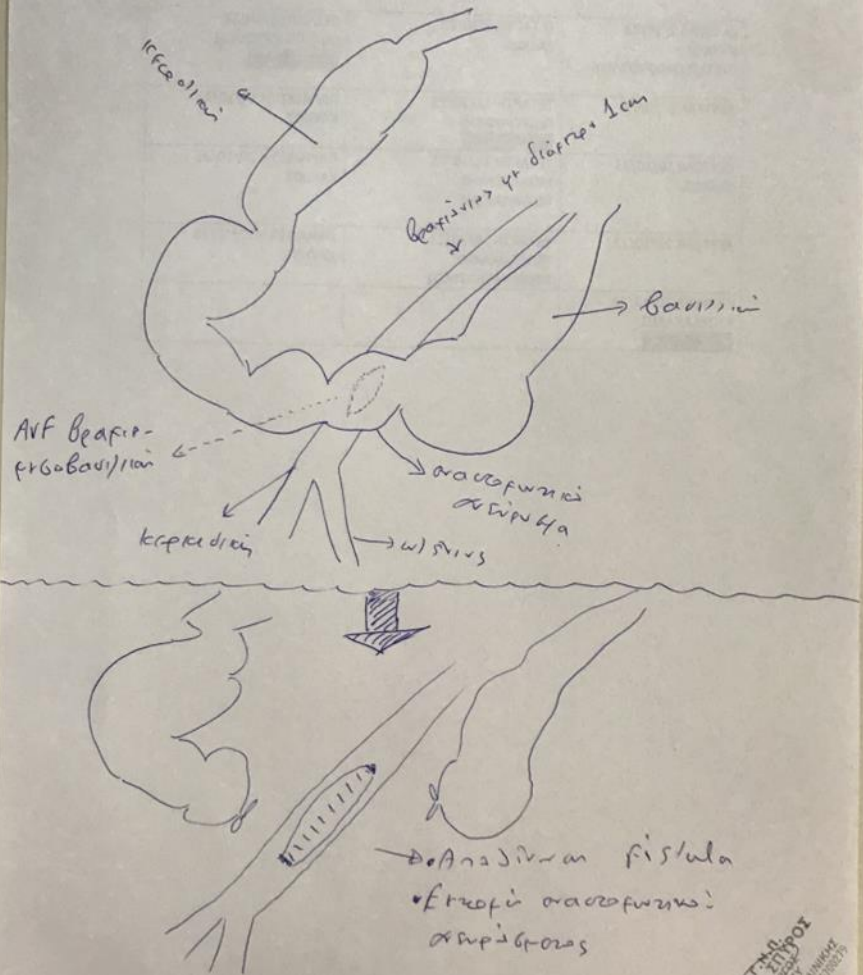 κεφαλική
βραχιόνιος με διάμετρο 1cm
βασιλική
AVF βραχιο-
μεσοβασιλική
αναστομωτικό
ανεύρυσμα
κερκιδική
ωλένιος
• Απολίνωση fistula
• Εκτομή αναστομωτικού
ανευρύσματος
Γ.Ν.Π.